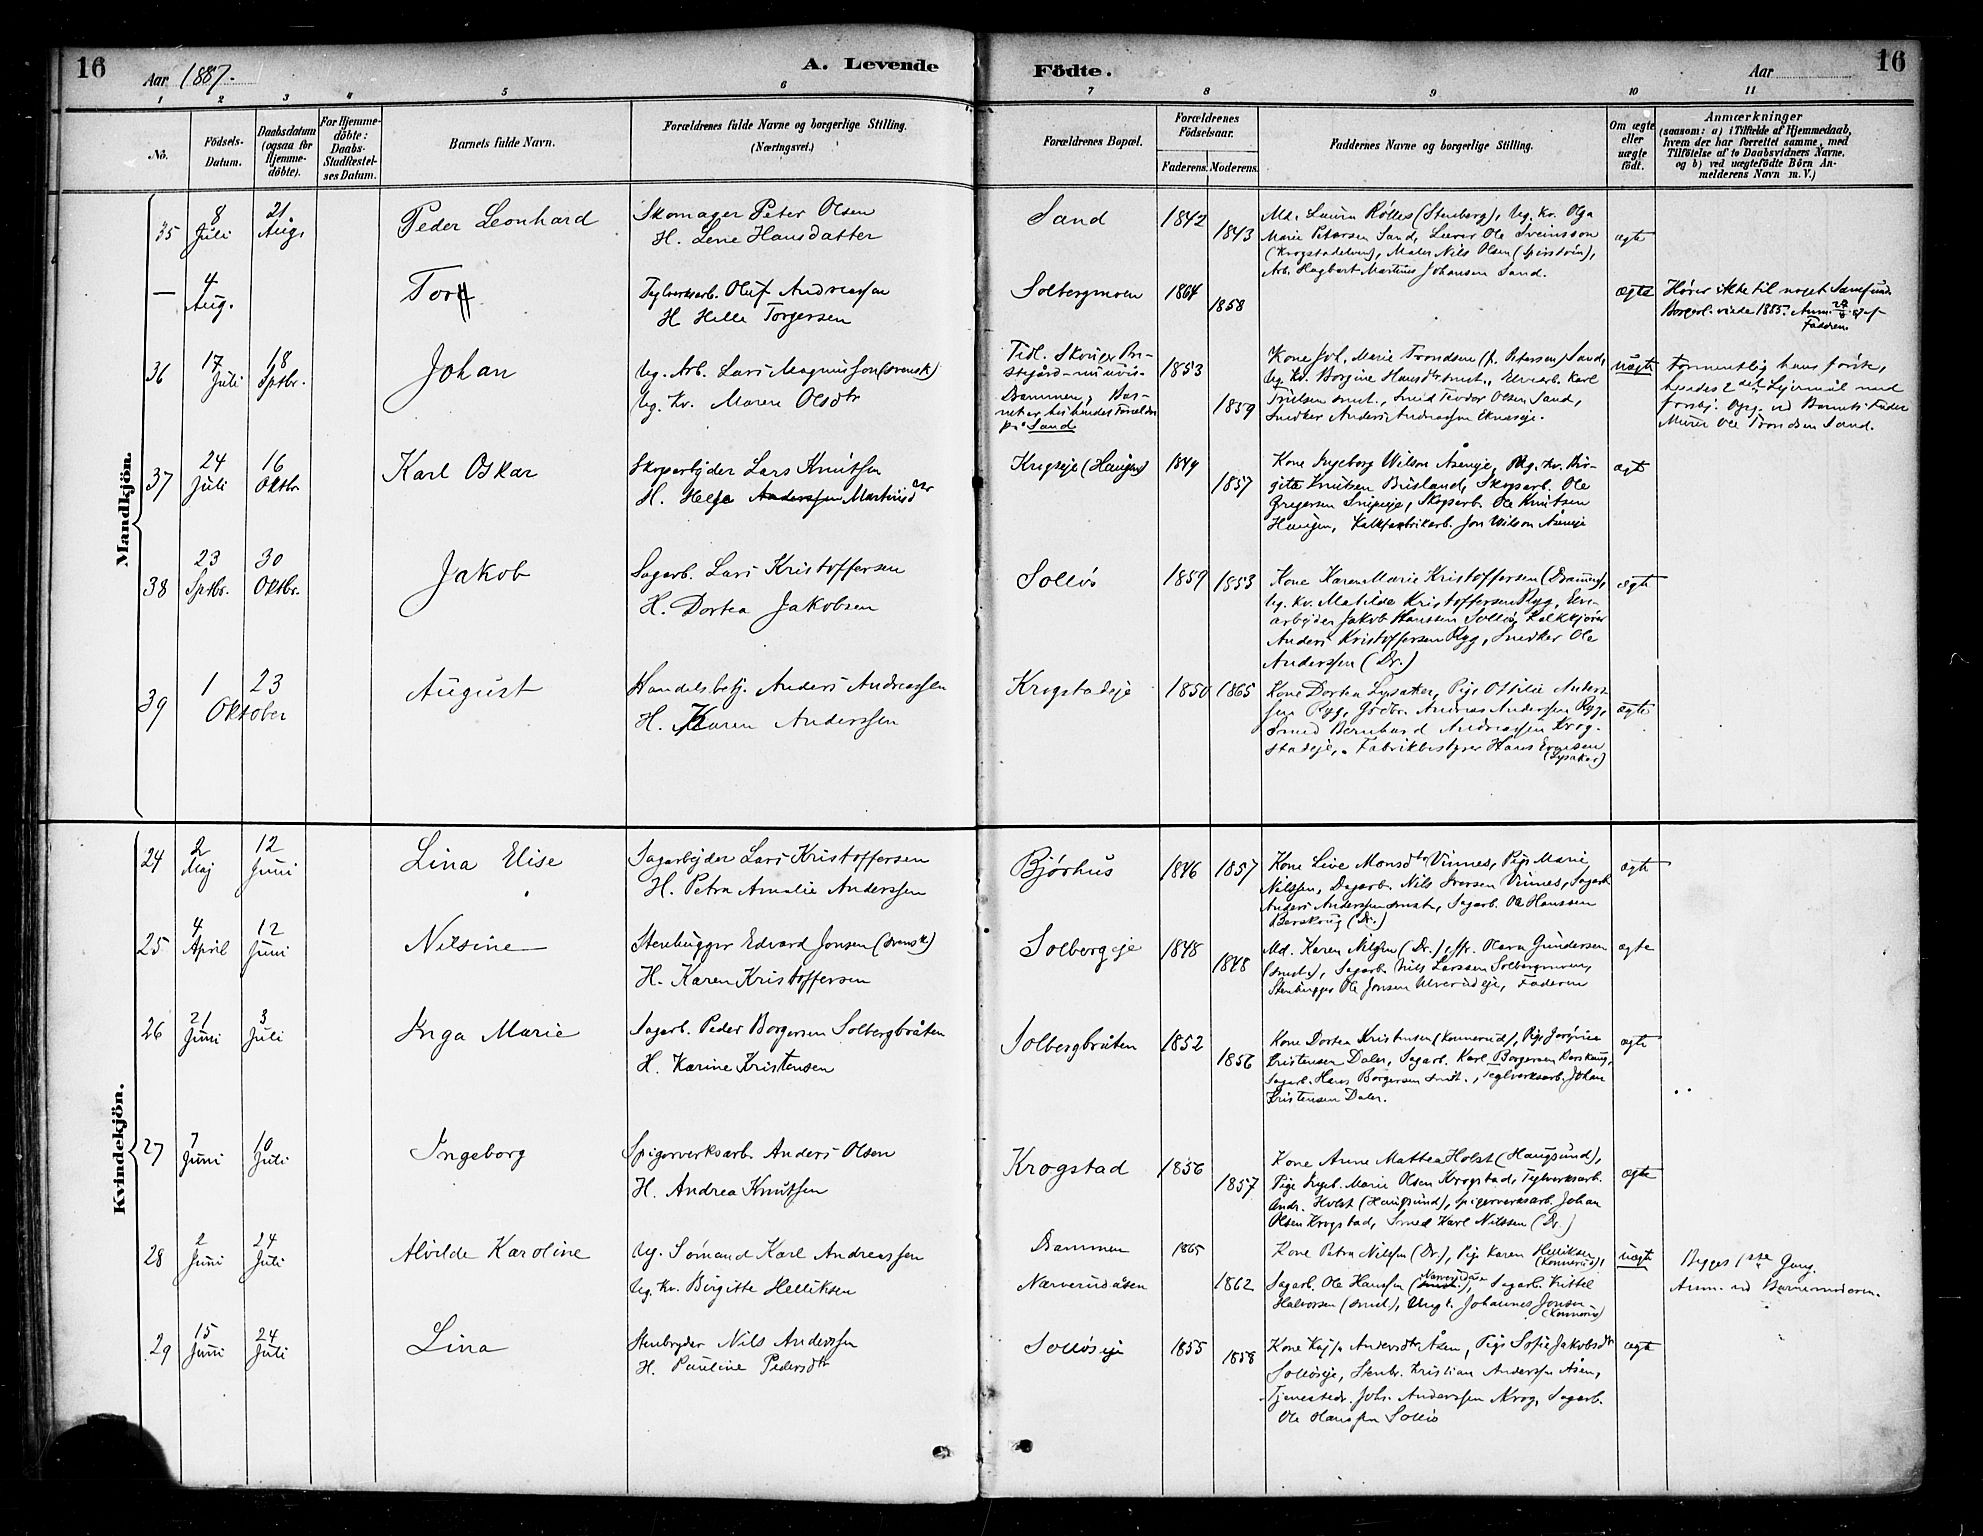 16
Aar 1887.
A. Levende
Födte.
Aar
16
1 2 3 4 5 6 7 8 9 10 11
No.
Födsels-Datum.
Daabsdatum (ogsaa for Hjemmedöbte).
For Hjemmedöbte: Daabs-Stadfæstelses Datum.
Barnets fulde Navn.
Forældrenes fulde Navne og borgerlige Stilling.
(Næringsvei.)
Forældrenes Bopæl.
Forældrenes Födselsaar.
Faderens. Moderens.
Faddernes Navne og borgerlige Stilling.
Om ægte eller uægte födt.
Anmærkninger
(saasom: a) i Tilfælde af Hjemmedaab,
hvem der har forrettet samme, med
Tilföielse af to Daabsvidners Navne,
og b) ved uægtefödte Börn An-
melderens Navn m. V.)
Mandkjön.
35
8 Juli
21 Aug.
Peder Leonhard
Skomager Peter Olsen
H. Lene Hansdatter
Sand
1842
1843
Md. Laura Rolles (Stenberg), Ug. Kv. Olga
Marie Petersen Sand, Lærer Ole Sveinsson
(Krogstadelven), Maler Nils Olsen (Spirströin),
Arb. Hagbart Martines Johansen Sand.
ægte
—
4 Aug.
Tor
Teglverksarb. Oluf Andreassen
H. Helle Torgersen
Solbergmoen
1864
1858
ægte
Hører ikke til noget Samfund.
Borgerl. viede 1885. Anm. af
Faderen.
36
17 Juli
18 Sptbr.
Johan
Ug. Arb. Lars Magnusson (svensk)
Ug. Kv. Maren Olsdtr
Tidl. Skouger Præ-
stegård
Drammen, Bar-
net er hos hendes Forældre
på Sand
1853
1859
Kone Joh. Marie Trondsen (f. Petersen) Sand,
Ug. Kv. Borgine Hansdtr smst., Elvearb. Karl
Smed Teodor Olsen Sand,
Snedker Anders Andreassen Eknæseje.
uægte
Formentlig hans første,
hendes 2det Lejermål med
forskj. Opg. ved Barnets Fader
Murer Ole Trondsen Sand.
37
24 Juli
16 Oktbr.
Karl Oskar
Skoparbejder Lars Knutsen
H. Helje Anderssen Martinisdtr
Krogseje (Haugen)
1849
1857
Kone Ingeborg Wilson Åseneje, Ug. Kv. Bir-
gite Knutsen Brusland, Skoparb. Ole
Gregersen Snipeje, Skoparb. Ole Knutsen
Haugen, Kalkfabrikarb. Jon Wilson Åseneje
ægt
38
23 Sptbr.
30 Oktbr.
Jakob
Sagarb. Lars Kristoffersen
H. Dortea Jakobsen
Solløs
1859
1853
Kone Karen Marie Kristoffersen (Drammen),
Ug. Kv. Matilde Kristoffersen Ryg, Elve-
arbejder Jakob Hanssen Solløs, Kalkkjører
Anders Kristoffersen Ryg, Snedker Ole
Anderssen (Dr.)
ægte
39
1
23
Oktober
August
Handelsbetj. Anders Andreassen
H. Karen Anderssen
Krogstadeje
1850
1865
Kone Dortea Lysaker, Pige Ottilie Anders-
sen Ryg, Gådbr. Andreas Anderssen Ryg,
Smed Bernhard Andreassen Krog-
stadeje, Fabrikbestyrer Hans Evensen
(Lysaker)
ægte
Kvindekjön.
24
2 Maj
12 Juni
Lina Elise
Sagarbejder Lars Kristoffersen
H. Petra Amalie Anderssen
Bjørhus
1846
1857
Kone Live Monsdtr Vinnes, Pige Marie
Nilssen, Dagarb. Nils Iversen Vinnes, Sagarb.
Anders Anderssen smst., Sagarb. Ole Hanssen
Berskoug (Dr.)
ægte
25
4 April
12 Juni
Nilsine
Stenhugger Edvard Jonsen (svensk)
H. Karen Kristoffersen
Solbergeje
1848
1848
Md. Karen Nilssen (Dr.), Fr. Olava Gundersen
(smst.), Sagarb. Nils Larssen Solbergmoen,
Stenhugger Ole Jonsen Ulverudeje, Faderen
ægte
26
21 Juni
3 Juli
Inga Marie
Sagarb. Peder Borgersen Solbergbråten
H. Karine Kristensen
Solbergbråten
1852
1856
Kone Dortea Kristensen (Konnerud), Pige Jørgine
Kristensen Daler, Sagarb. Karl Borgersen Berskaug,
Sagarb. Hans Borgersen smst., Teglverksarb. Johan
Kristensen Daler.
ægte
27
7 Juni
10 Juli
Ingeborg
Spigerverksarb. Anders Olsen
H. Andrea Knutsen
Krogstad
1856
1857
Kone Anne Mattea Holst (Haugsund),
Pige Ingeb. Marie Olsen Krogstad, Teglverksarb.
Andr. Holst (Haugsund), Spigerverksarb. Johan
Olsen Krogstad, Smed Karl Nilssen (Dr.)
ægte
28
2 Juni
24 Juli
Alvilde Karoline
Ug. Sømand Karl Andreassen
Ug. Kv. Birgitte Helliksen
Drammen
Nærverudåsen
1865
1862
Kone Petra Nilssen (Dr.), Pige Karen Helliksen
(Konnerud),
Sagarb. Ole Hanssen (Nærverudåsen), Sagarb. Kittel
Halvorsen (smst.), Ungk. Johannes Jonsen
(Konnerud)
uægte
Begges 1ste Gang.
Anm. ved Barnemoderen.
29
15 Juni
24 Juli
Lina
Stenbryder Nils Anderssen
H. Pauline Pedersdtr
Solløseje
1855
1858
Kone Kajsa Andersdtr Åsen, Pige Sofie Jakobsdtr
Solløseje, Stenbr. Kristian Anderssen Åsen,
Tjenestedr. Johs. Anderssen Krog, Sagarb.
Ole Hanssen Solløs
ægte